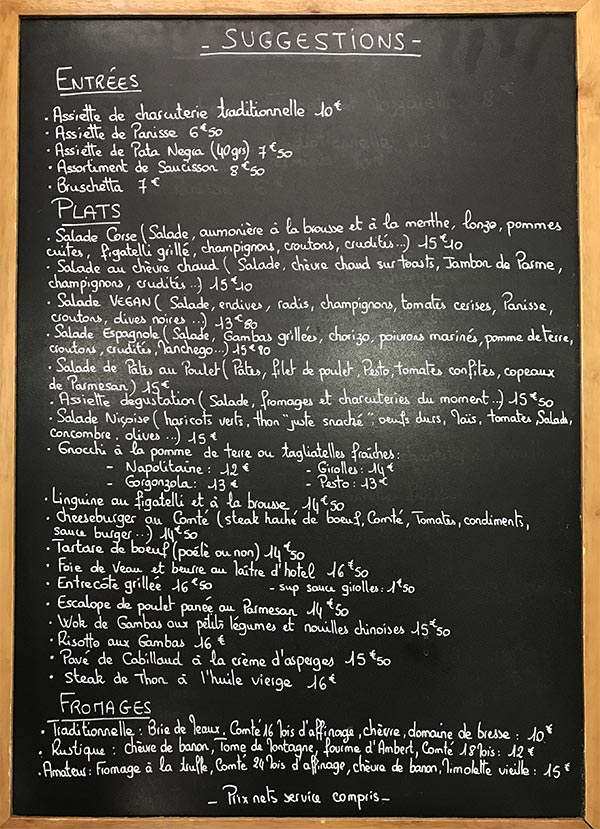 - SUGGESTIONS -
ENTRÉES
• Assiette de charcuterie traditionnelle 10€
• Assiette de Panisse 6€50
• Assiette de Pata Negra (40grs) 7€50
• Assortiment de Saucisson 8€50
• Bruschetta 7€
PLATS
• Salade Corse (Salade, aumonière à la brousse et à la menthe, lonzo, pommes
cuites, figatelli grillé, champignons, croutons, crudités...) 15€10
• Salade au chèvre chaud (Salade, chèvre chaud sur toasts, Jambon de Parme,
champignons, crudités...) 15€10
• Salade VEGAN (Salade, endives, radis, champignons, tomates cerises, Panisse,
croutons, olives noires...) 13€80
• Salade Espagnole (Salade, Gambas grillées, chorizo, poivrons marinés, pomme de terre,
croutons, crudités, Manchego...) 15€80
• Salade de Pâtes au Poulet (Pâtes, filet de poulet, Pesto, tomates confites, copeaux
de Parmesan) 15€
• Assiette dégustation (Salade, fromages et charcuteries du moment...) 15€50
• Salade Niçoise (haricots verts, thon "juste snaché", oeufs durs, Maïs, tomates, Salade,
concombre, olives...) 15€
• Gnocchi à la pomme de terre ou tagliatelles fraîches:
- Napolitaine: 12€ - Girolles: 14€
- Gorgonzola: 13€ - Pesto: 13€
• Linguine au figatelli et à la brousse 14€50
• Cheeseburger au Comté (steak haché de boeuf, Comté, Tomates, condiments,
sauce burger...) 14€50
• Tartare de boeuf (poêlé ou non) 14€50
• Foie de Veau et beurre au Maître d'hotel 16€50
• Entrecôte grillée 16€50 - sup sauce girolles: 1€50
• Escalope de poulet panée au Parmesan 14€50
• Wok de Gambas aux petits légumes et nouilles chinoises 15€50
• Risotto aux Gambas 16€
• Pavé de Cabillaud à la crème d'asperges 15€50
• Steak de Thon à l'huile vierge 16€
FROMAGES
• Traditionnelle: Brie de Meaux, Comté 16 Mois d'affinage, chèvre, domaine de bresse: 10€
• Rustique: chèvre de banon, Tome de Montagne, fourme d'Ambert, Comté 18 Mois: 12€
• Amateur: Fromage à la truffe, Comté 24 Mois d'affinage, chèvre de banon, Mimolette vieille: 15€
- Prix nets service compris -